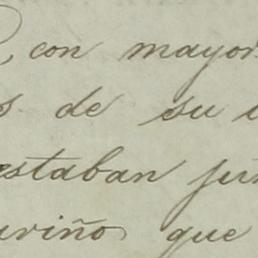 , con mayor
s de su
estaban jun
uriño que